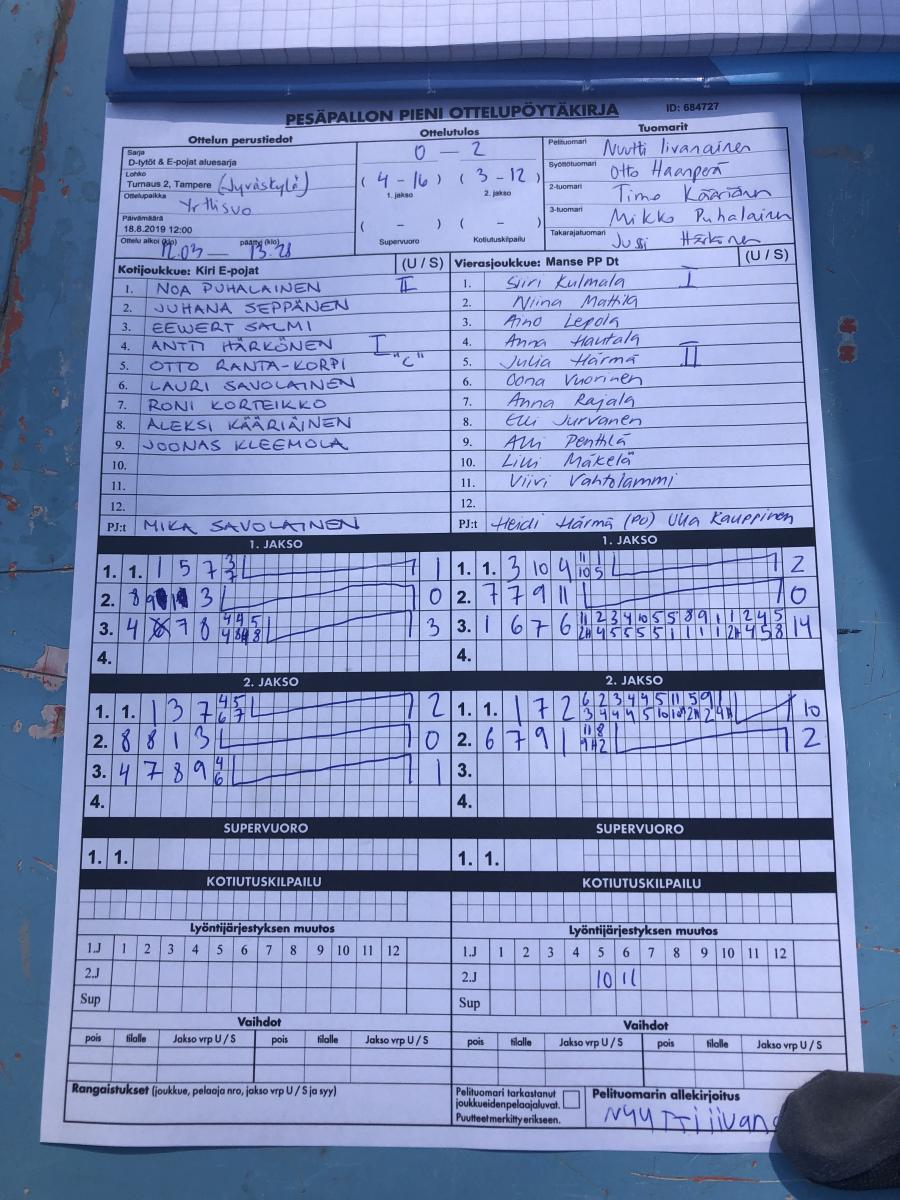 PESÄPALLON PIENI OTTELUPÖYTÄKIRJA
ID: 684727
Ottelun perustiedot
Sarja
D-tytöt & E-pojat aluesarja
Lohko
Turnaus 2, Tampere (Jyväskylä)
Ottelupaikka
Yrttisuo
Päivämäärä
18.8.2019 12:00
Ottelu alkoi (klo) päättyi (klo)
12.03 — 13.28
Ottelutulos
0 — 2
(4 - 16) (3 - 12)
1. jakso 2. jakso
( - ) ( - )
Supervuoro Kotiutuskilpailu
Tuomarit
Pelituomari Nuutti Iivanainen
Syöttötuomari Otto Haanperä
2-tuomari Timo
3-tuomari Mikko Puhalainen
Takarajatuomari Jussi Härkönen
Kotijoukkue: Kiri E-pojat (U / S)
1. NOA PUHALAINEN II
2. JUHANA SEPPÄNEN
3. EEWERT SALMI
4. ANTTI HÄRKÖNEN I
5. OTTO RANTA-KORPI "C"
6. LAURI SAVOLAINEN
7. RONI KORTEIKKO
8. ALEKSI KÄÄRIÄINEN
9. JOONAS KLEEMOLA
10.
11.
12.
PJ:t MIKA SAVOLAINEN
Vierasjoukkue: Manse PP Dt (U / S)
1. Siiri Kulmala I
2. Niina Mattila
3. Aino Lepola
4. Anna Hautala
5. Julia Härmä II
6. Oona Vuorinen
7. Anna Rajala
8. Elli Jurvanen
9. Alli
10. Lilli Mäkelä
11. Viivi Vahtolammi
12.
PJ:t Heidi Härmä (PJ) Ulla Kauppinen
1. JAKSO
1. 1. 1 5 7 3 7 1
2. 8 9 3 0
3. 4 7 8 4 4 5 3
4.
1. JAKSO
1. 1. 3 10 9 11 1 10 5 2
2. 7 7 9 11 0
3. 1 6 7 6 11 2 3 4 10 5 5 8 9 1 1 2 4 5 14
4.
2. JAKSO
1. 1. 1 3 7 4 5 6 7 2
2. 8 8 1 3 0
3. 4 7 8 9 4 6 1
4.
2. JAKSO
1. 1. 1 7 2 6 2 3 4 4 5 11 5 9 1 10
2. 6 7 9 1 11 8 2
3.
4.
SUPERVUORO
1. 1.
SUPERVUORO
1. 1.
KOTIUTUSKILPAILU
KOTIUTUSKILPAILU
Lyöntijärjestyksen muutos
1.J 1 2 3 4 5 6 7 8 9 10 11 12
2.J
Sup
Lyöntijärjestyksen muutos
1.J 1 2 3 4 5 6 7 8 9 10 11 12
2.J 10 11
Sup
Vaihdot
pois tilalle Jakso vrp U / S pois tilalle Jakso vrp U / S
Vaihdot
pois tilalle Jakso vrp U / S pois tilalle Jakso vrp U / S
Rangaistukset (joukkue, pelaaja nro, jakso vrp U / S ja syy)
Pelituomari tarkastanut
joukkueidenpelaajaluvat.
Puutteet merkitty erikseen.
Pelituomarin allekirjoitus